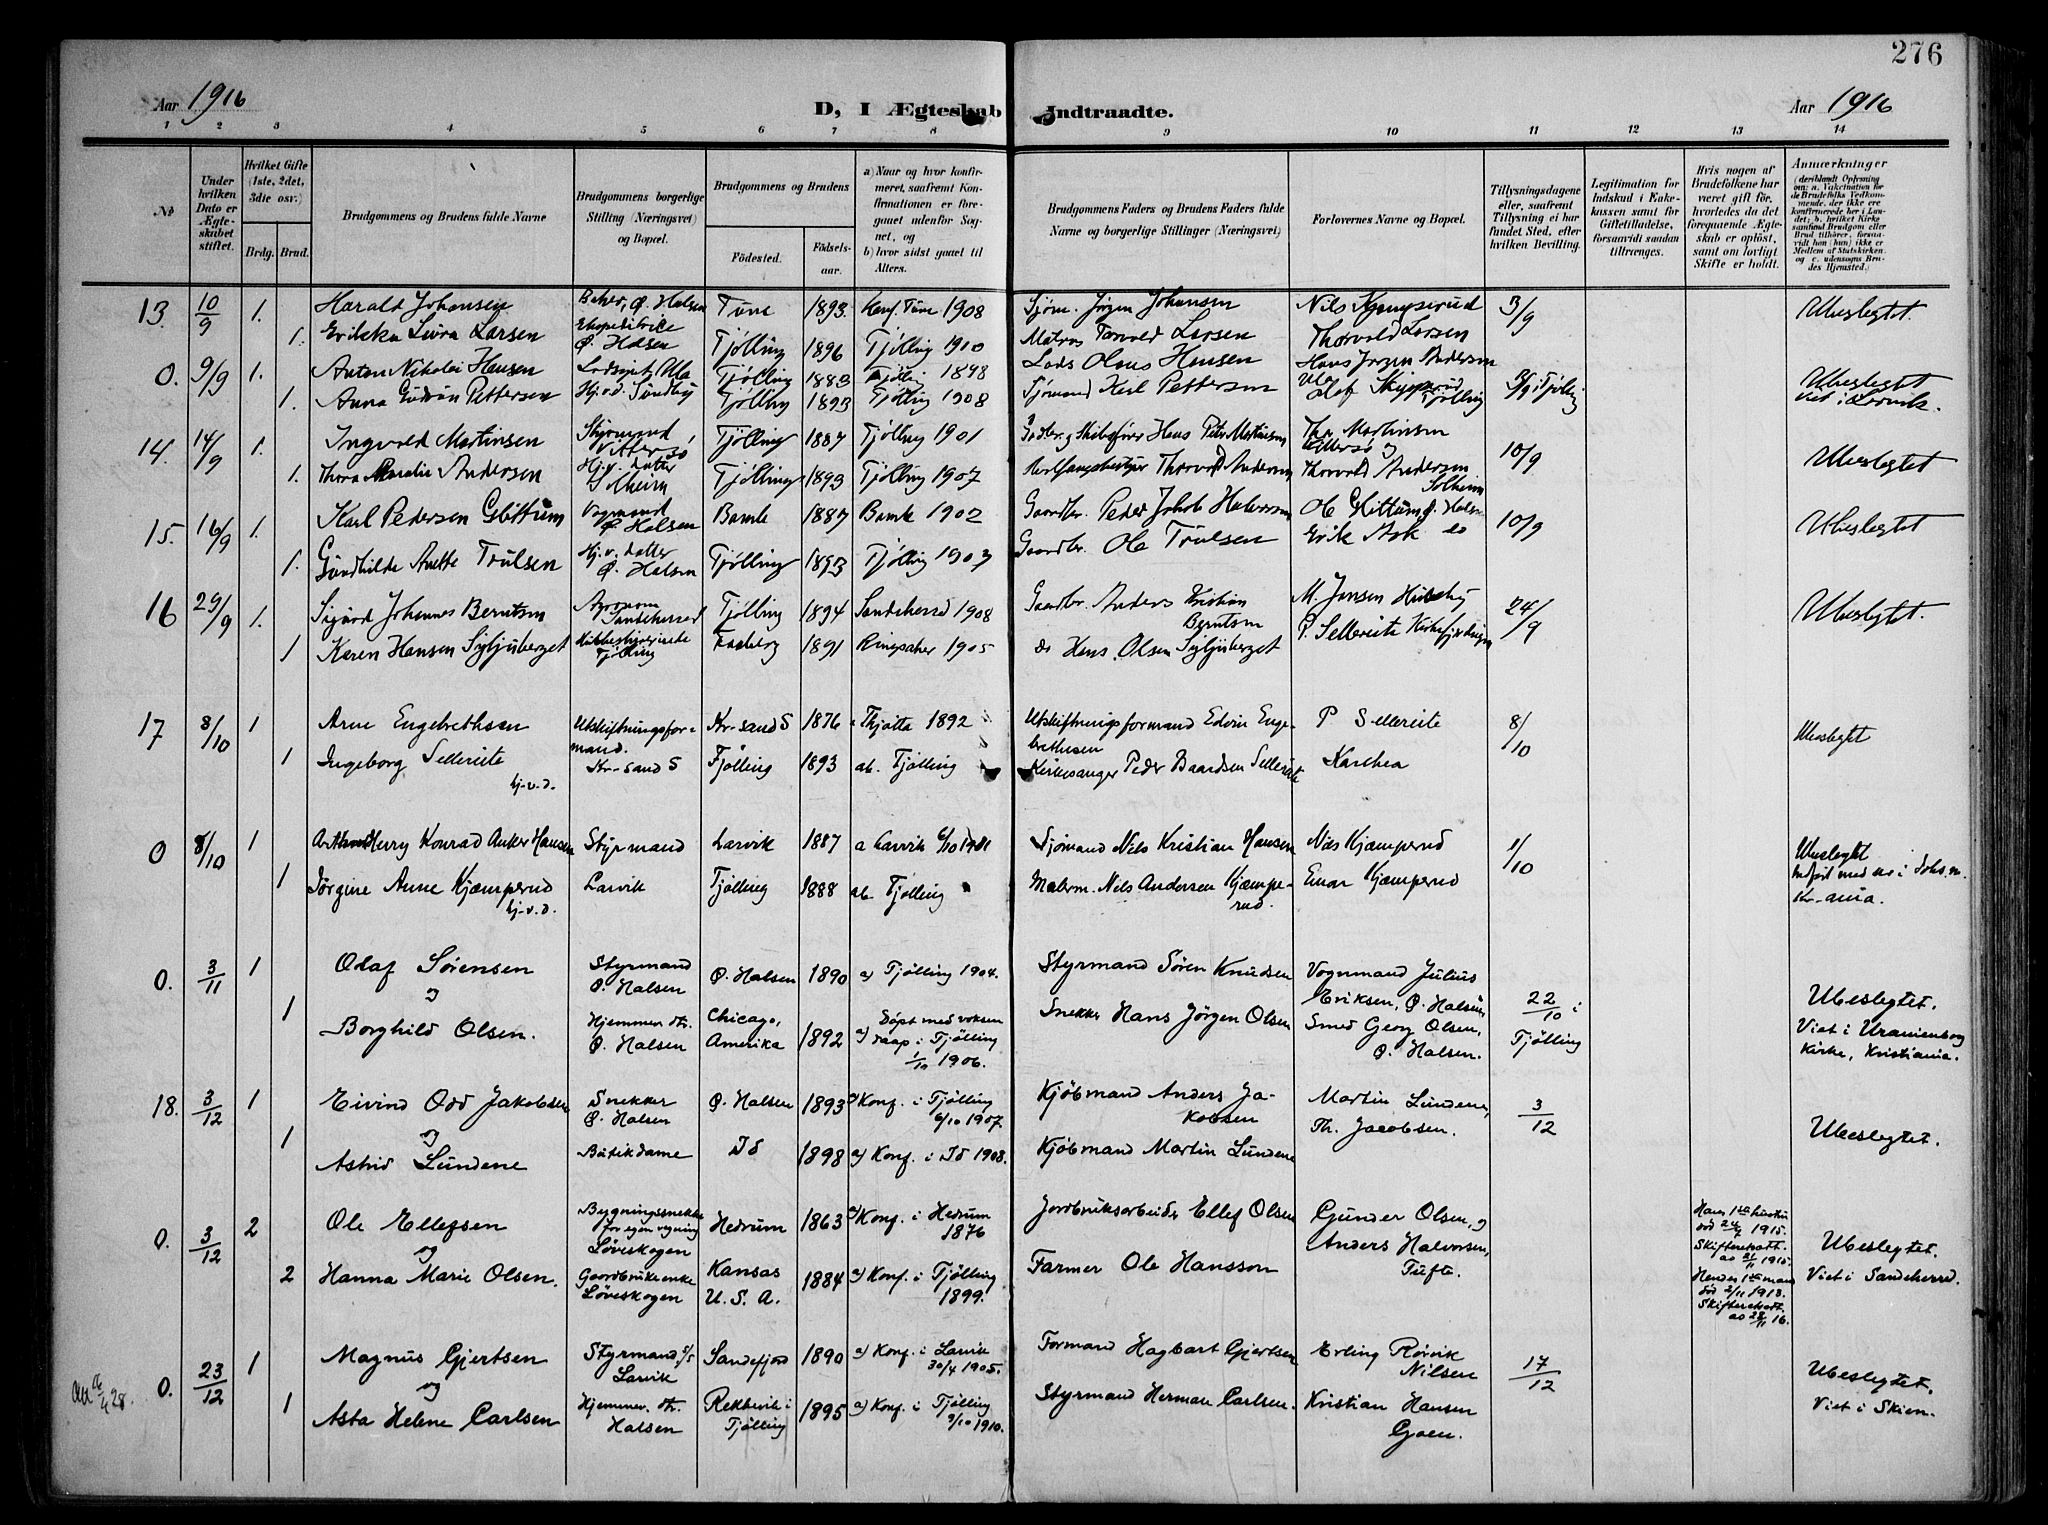 276
Aar 1916
D, I Ægteskab Indtraadte.
Aar 1916
1 2 3 4 5 6 7 8 9 10 11 12 13 14
No
Under hvilken Dato er Ægteskabet stiftet.
Hvilket Gifte (1ste, 2det, 3die osv.)
Brdg. Brud.
Brudgommens og Brudens fulde Navne
Brudgommens borgerlige Stilling (Næringsvei) og Bopæl.
Brudgommens og Brudens
Fødested.
Fødselsaar.
a) Naar og hvor konfirmeret, saafremt Konfirmationen er foregaaet udenfor Sognet, og
b) hvor sidst gaaet til Alters.
Brudgommens Faders og Brudens Faders fulde Navne og borgerlige Stillinger (Næringsvei)
Forlovernes Navne og Bopæl.
Tillysningsdagene eller, saafremt Tillysning ei har fundet Sted, efter hvilken Bevilling.
Legitimation for Indskud i Enkekassen samt for Giftetilladelse, forsaavidt saadan tiltrænges.
Hvis nogen af Brudefolkene har været gift før, hvorledes da det foregaaende Ægteskab er opløst, samt om lovligt Skifte er holdt.
Anmærkninger
(deriblandt Oplysning om: a. Vaccination for de Brudefolks Vedkommende, der ikke ere konfirmerede her i Landet; b. hvilket Kirkesamfund Brudgom eller Brud tilhører, forsaavidt han (hun) ikke er Medlem af Statskirken og c. udensogns Brudes Hjemsted.)
13. 10/9 1. Harald Johansen Ø. Halsen Tune 1893. Konf. Tune 1908 Sjøm. Jørgen Johansen Nils Kjempervud 3/9 Ubeslegtet.
1. Larsen Ekspeditrice Ø. Halsen Tjølling 1896 Tjølling 1910 Matros Torvald Larsen Thorvald Larsen
0. 9/9 1. Anton Nikolai Hansen Ula Tjølling 1883 Tjølling 1898 Lods Olaus Hansen Hans Jrgen Andersen Ula
1. Anna Gudrun Pettersen Hj.v.d. Sundby Tjølling 1893 Tjølling 1908 Sjømand Karl Pettersen Tjølling 3/9 i Tjølling Ubeslegtet Viet i Larvik.
14. 14/9 1. Ingvald Martinsen Styrmand Tjølling 1887 Tjølling 1901 Hans Petr Martinsen Thr. Martinsen 10/9 Ubeslegtet
1. Thora Andersen Hj.v. datter Solheim Tjølling 1893 Tjølling 1907 Thorvald Andersen Thorvald Andersen Solheim
15. 16/9 1. Karl Pedersen Glittum Vognmand Ø. Halsen Bamle 1887 Bamle 1902 Gaardbr. Peder Jakob Halvorsen Ole Glittum Ø. Halsen 10/9 Ubeslegtet
1. Gundhilde Anette Trulsen Hj.v. datter Ø. Halsen Tjølling 1893 Tjølling 1907 Gaardbr. Ole Trulsen Erik Ask do
16 29/9 1. Sigurd Johannes Berntsen Agronom Sandeherred Tjølling 1894 Sandeherred 1908 Gaardbr. Anders Kristian Berntsen M. Jansen Huseby 24/9 Ubeslegtet
1 Karen Hansen Sygljuberget Tjølling Faaberg 1891 Ringsaker 1905 do Hans Olsen Sygljuberget P. Sellereite
17 8/10 1 Arne Engebrethsen Utskiftningsformand. Kr-sand S Kr-sand S 1876 Thjøtta 1892 Utskiftningsformand Edvin Engebrethsen P Sellereite 8/10 Ubeslegtet
1 Ingeborg Sellereite hj-v-d. Tjølling 1893 ab. Tjølling Kirkesanger Peder Baardsen Sellereite Kaelhea
0 8/10 1 Arthur Henry Konrad Anker Hansen Styrmand Larvik 1887 a Larvik 6/10 1901 Sjømand Nils Kristian Hansen Nils Kjæmperud 1/10 Ubeslegtet
1 Jørgine Anne Kjæmperud hj-v-d. Larvik Tjølling 1888 ab. Tjølling Malerm. Nils Andersen Kjæmperud. Einar Kjæmperud Kr-ania.
0. 3/11 1 Olaf Sørensen og Styrmand Ø. Halsen Ø. Halsen 1890 a) Tjølling 1904. Styrmand Søren Knudsen Vognmand Julius Eriksen, Ø. Halsen,
1 Borghild Olsen. Hjemmev. dtr. Ø. Halsen Chicago, Amerika 1892 a) Døpt med voksen daap i Tjølling 1/10 1906. Snekker Hans Jørgen Olsen Smed Georg Olsen, Ø. Halsen. 22/10 i Tjølling Ubeslegtet. Viet i Uranienborg Kirke, Kristiania.
18. 3/12 1 Eivind Odd Jakobsen og Snekker Ø. Halsen Ø. Halsen 1893 a) Konf. i Tjølling 6/10 1907. Kjøbmand Anders Jakobsen Martin Lundene, Th. Jacobsen. 3/12 Ubeslegtet.
1 Astrid Lundene Butikdame Id 1898 a) Konf. i Id 1908. Kjøbmand Martin Lundene
0. 3/12 2 Ole Ellefsen og Bygningssnekker for egen regning Løveskogen Hedrum 1863 a) Konf. i Hedrum 1876 Jordbruksarbeider Ellef Olsen Gunder Olsen, og Anders Halvorsen, Tufte. Hans 1ste hustru død 24/7 1915. Skifteretsatt. av 21/11 1915. Ubeslegtet.
2 Hanna Marie Olsen. Gaardbrukerenke Løveskogen Kansas U. S. A. 1884 a) Konf. i Tjølling 1899. Farmer Ole Hansson Hendes 1ste mand død 2/11 1913. Skifteretsatt. av 28/11 16. Viet i Sandeherred.
0. 23/12 1 Magnus Gjertsen og Styrmand Larvik Sandefjord 1890 a) Konf. i Larvik 30/4 1905. Formand Hagbart Gjertsen Erling Rørvik Nilsen 17/12 Ubeslegtet.
1 Asta Helene Carlsen Hjemmev. dtr. Halsen Rekkevik i Tjølling 1895 a) Konf. i Tjølling 9/10 1910. Styrmand Herman Carlsen. Kristian Hansen Gaen. Viet i Skien.